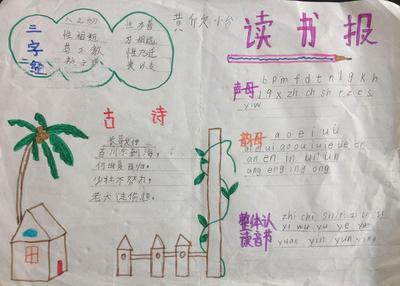 三字经
人之初 性本善
性相近 习相远
苟不教 性乃迁
读书报
声母 b p m f d t n l g k h
j q x zh ch sh r z c s
y w
古诗
百川东到海,
何时复西归。
少壮不努力,
老大徒伤悲。
韵母 a o e i u ü
ai ei ui ao ou iu ie üe er
an en in un ün
ang eng ing ong
整体认读音节
zhi chi shi ri zi ci si
yi wu yu ye yue
yuan yin yun ying